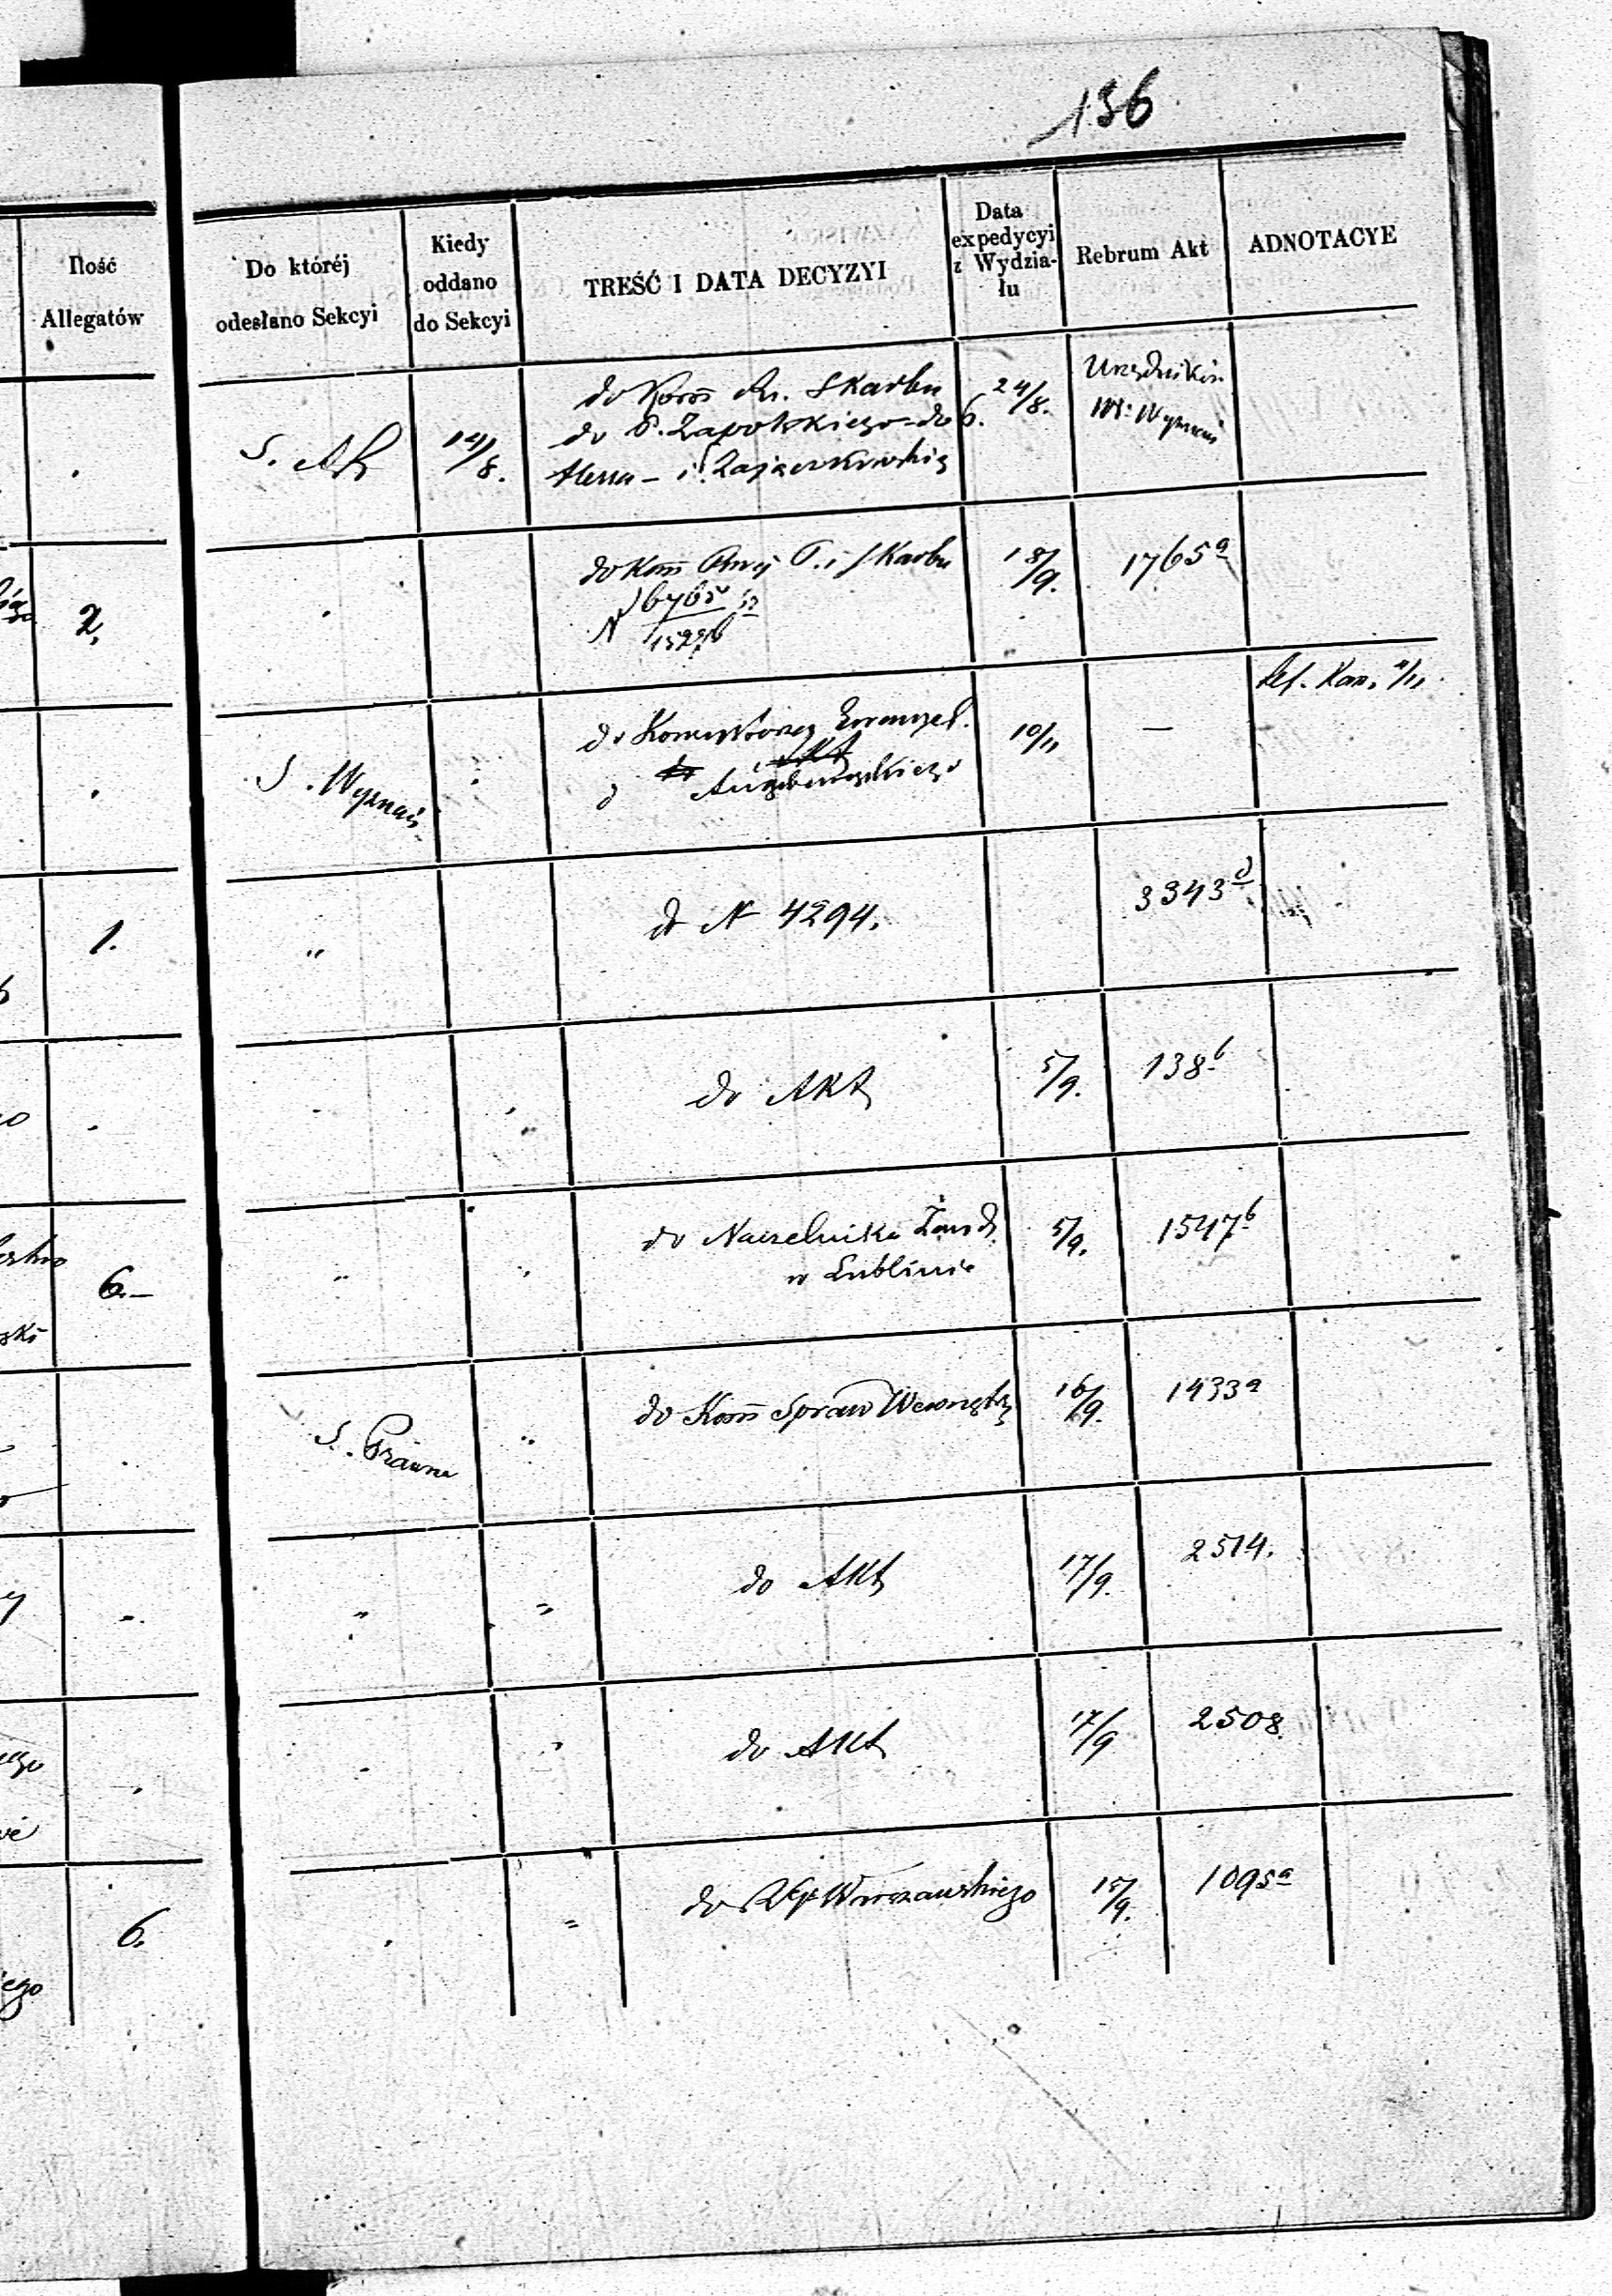 136
Ilość
Allegatów
Do któréj
odesłano Sekcyi
Kiedy
oddano
do Sekcyi
TREŚĆ I DATA DECYZYI
Data
expedycyi
z Wydzia-
łu
Rebrum Akt
ADNOTACYE
.
S.
14/8.
do Kom̄ Skarbu
do P. Zapolskiego - do
i Zajączkowskie
24/8.
Urzędników
Wyznań
2,
do Kom̄ P. i Skarbu
N
18/9.
1765 a
S. Wyznań
do Konsystorza Ewangel.
Augsburgskiego
10/11
—
Ref. Kan. 
1.
"
do N 4294.
3343 d
do Akt
5/9.
138 b
6.—
"
do Naczelnika Żand.
w Lublinie
5/9.
1547 b
S. Prawna
"
do Kom̄ Spraw Wewnętrz
16/9.
1433 a
"
do Akt
17/9.
2514.
"
do Akt
17/9
2508
6.
iego
do Warszawskiego
15/9.
1095 a